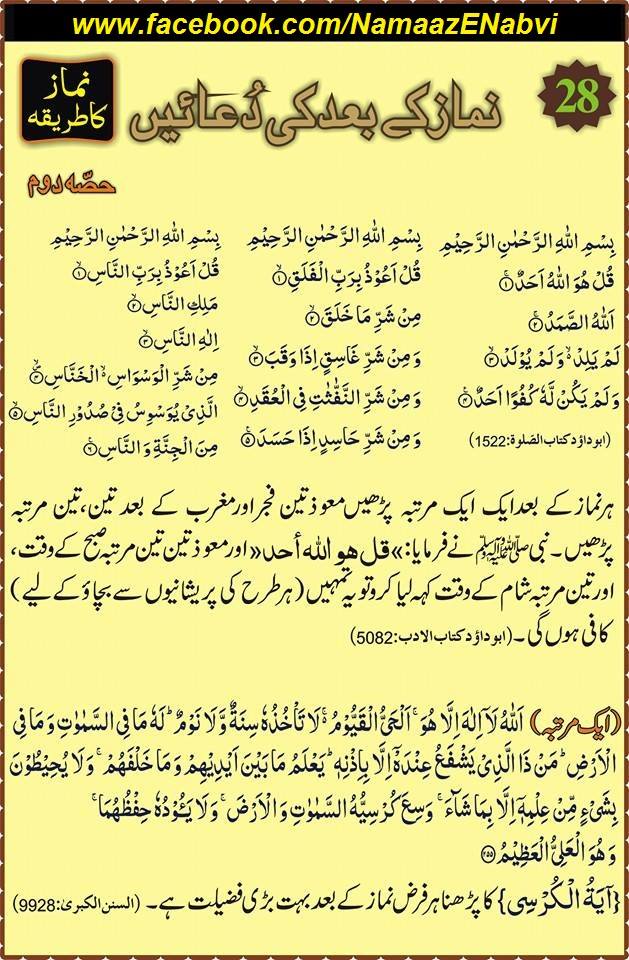 www.facebook.com/NamaazENabvi
28
نماز کے بعد کی دُعائیں
نماز
کا طریقہ
حصّہ دوم
بِسْمِ اللهِ الرَّحْمٰنِ الرَّحِيْمِ
قُلْ هُوَ اللهُ اَحَدٌ ۚ﴿۱﴾
اَللهُ الصَّمَدُ ۚ﴿۲﴾
لَمْ يَلِدْ ۙ وَ لَمْ يُوْلَدْ ۙ﴿۳﴾
وَ لَمْ يَكُنْ لَّهٗ كُفُوًا اَحَدٌ ۠﴿۴﴾
(ابوداؤد کتاب الصلوٰۃ:1522)
بِسْمِ اللهِ الرَّحْمٰنِ الرَّحِيْمِ
قُلْ اَعُوْذُ بِرَبِّ الْفَلَقِ ۙ﴿۱﴾
مِنْ شَرِّ مَا خَلَقَ ۙ﴿۲﴾
وَ مِنْ شَرِّ غَاسِقٍ اِذَا وَقَبَ ۙ﴿۳﴾
وَ مِنْ شَرِّ النَّفّٰثٰتِ فِي الْعُقَدِ ۙ﴿۴﴾
وَ مِنْ شَرِّ حَاسِدٍ اِذَا حَسَدَ ﴿۵﴾
بِسْمِ اللهِ الرَّحْمٰنِ الرَّحِيْمِ
قُلْ اَعُوْذُ بِرَبِّ النَّاسِ ۙ﴿۱﴾
مَلِكِ النَّاسِ ۙ﴿۲﴾
اِلٰهِ النَّاسِ ۙ﴿۳﴾
مِنْ شَرِّ الْوَسْوَاسِ ۙ الْخَنَّاسِ ۙ﴿۴﴾
الَّذِيْ يُوَسْوِسُ فِيْ صُدُوْرِ النَّاسِ ۙ﴿۵﴾
مِنَ الْجِنَّةِ وَ النَّاسِ ﴿۶﴾
ہر نماز کے بعد ایک ایک مرتبہ پڑھیں معوذتین فجر اور مغرب کے بعد تین، تین مرتبہ
پڑھیں۔ نبی ﷺ نے فرمایا: »قل هو الله أحد« اور معوذتین تین مرتبہ صبح کے وقت،
اور تین مرتبہ شام کے وقت کہہ لیا کرو تو یہ تمہیں (ہر طرح کی پریشانیوں سے بچاؤ کے لیے)
کافی ہوں گی۔ (ابوداؤد کتاب الادب:5082)
(ایک مرتبہ) اَللهُ لَاۤ اِلٰهَ اِلَّا هُوَ ۚ اَلْحَيُّ الْقَيُّوْمُ ۬ۚ لَا تَاْخُذُهٗ سِنَةٌ وَّ لَا نَوْمٌ ؕ لَهٗ مَا فِي السَّمٰوٰتِ وَ مَا فِي
الْاَرْضِ ؕ مَنْ ذَا الَّذِيْ يَشْفَعُ عِنْدَهٗۤ اِلَّا بِاِذْنِهٖ ؕ يَعْلَمُ مَا بَيْنَ اَيْدِيْهِمْ وَ مَا خَلْفَهُمْ ۚ وَ لَا يُحِيْطُوْنَ
بِشَيْءٍ مِّنْ عِلْمِهٖۤ اِلَّا بِمَا شَآءَ ۚ وَسِعَ كُرْسِيُّهُ السَّمٰوٰتِ وَ الْاَرْضَ ۚ وَ لَا يَـُٔوْدُهٗ حِفْظُهُمَا ۚ
وَ هُوَ الْعَلِيُّ الْعَظِيْمُ ﴿۲۵۵﴾
{آیَةُ الْکُرْسِی} کا پڑھنا ہر فرض نماز کے بعد بہت بڑی فضیلت ہے۔ (السنن الکبریٰ:9928)